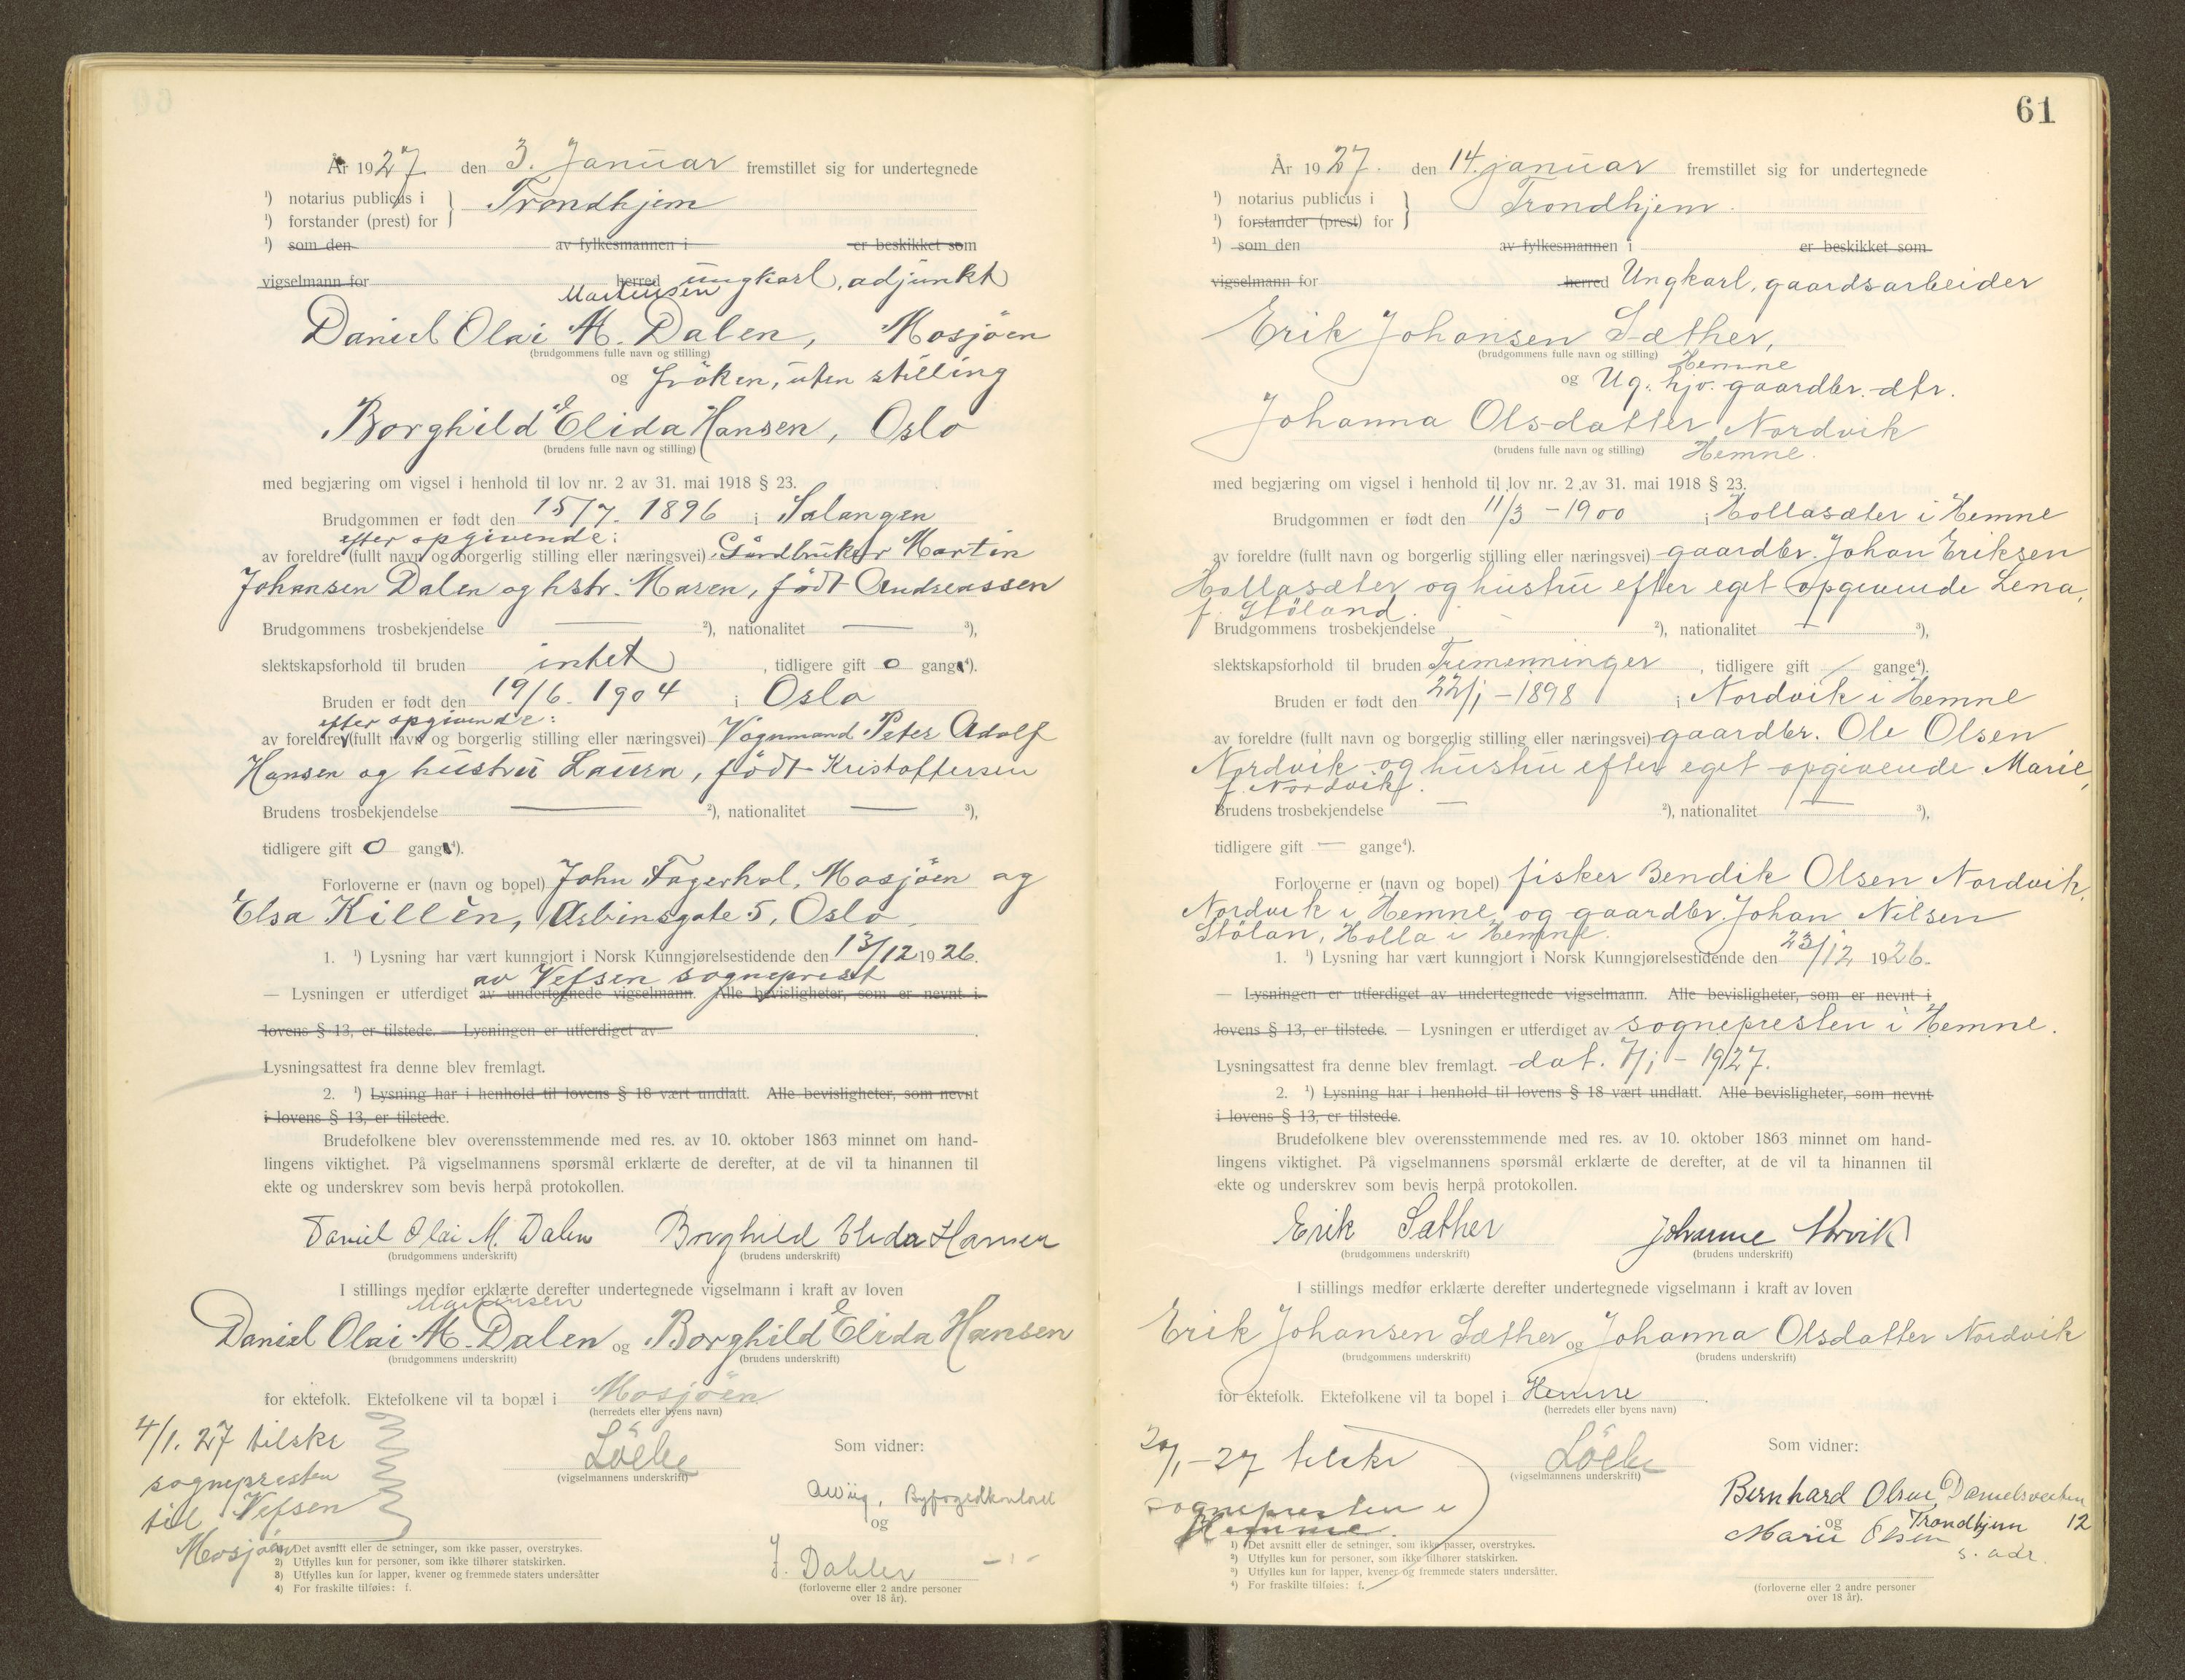 År 1927 den 3. Januar fremstillet sig for undertegnede
¹) notarius publicus i
¹) forstander (prest) for } Trondhjem
¹) som den av fylkesmannen i er beskikket som
vigselmann for herred ungkarl, adjunkt
Martinsen
Daniel Olai M. Dalen, Mosjöen
(brudgommens fulle navn og stilling)
og fröken, uten stilling
Borghild Elida Hansen, Oslo
(brudens fulle navn og stilling)
med begjæring om vigsel i henhold til lov nr. 2 av 31. mai 1918 § 23.
Brudgommen er født den 15/7. 1896 i Salangen
efter opgivende:
av foreldre (fullt navn og borgerlig stilling eller næringsvei) Gårdbruker Martin
Johansen Dalen og hstr. Maren, födt Andreassen
Brudgommens trosbekjendelse — ²), nationalitet — ³),
slektskapsforhold til bruden intet, tidligere gift 0 gang⁴).
Bruden er født den 19/6. 1904 i Oslo
efter opgivende:
av foreldre (fullt navn og borgerlig stilling eller næringsvei) Vognmand Peter Adolf
Hansen og hustru Laura, födt Kristoffersen
Brudens trosbekjendelse — ²), nationalitet — ³),
tidligere gift 0 gang⁴).
Forloverne er (navn og bopel) John Fagerhol, Mosjöen og
Elsa Killèn, Asbinsgate 5, Oslo.
1. ¹) Lysning har vært kunngjort i Norsk Kunngjørelsestidende den 13/12 1926.
av Vefsen sogneprest
— Lysningen er utferdiget av undertegnede vigselmann. Alle bevisligheter, som er nevnt i
lovens § 13, er tilstede. — Lysningen er utferdiget av
Lysningsattest fra denne blev fremlagt.
2. ¹) Lysning har i henhold til lovens § 18 vært undlatt. Alle bevisligheter, som nevnt
i lovens § 13, er tilstede.
Brudefolkene blev overensstemmende med res. av 10. oktober 1863 minnet om hand-
lingens viktighet. På vigselmannens spørsmål erklærte de derefter, at de vil ta hinannen til
ekte og underskrev som bevis herpå protokollen.
Daniel Olai M. Dalen Borghild Elida Hansen
(brudgommens underskrift) (brudens underskrift)
I stillings medfør erklærte derefter undertegnede vigselmann i kraft av loven
Martinsen
Daniel Olai M. Dalen og Borghild Elida Hansen
(brudgommens underskrift) (brudens underskrift)
for ektefolk. Ektefolkene vil ta bopæl i Mosjöen
(herredets eller byens navn)
4/1. 27 tilskr
sognepresten
til Vefsen
Mosjöen
(vigselmannens underskrift)
Som vidner:
Byfogedkontoret
og
J. Dahler — " —
(forloverne eller 2 andre personer
over 18 år).
1) Det avsnitt eller de setninger, som ikke passer, overstrykes.
2) Utfylles kun for personer, som ikke tilhører statskirken.
3) Utfylles kun for lapper, kvener og fremmede staters undersåtter
4) For fraskilte tilføies: f.
61
År 1927. den 14. januar fremstillet sig for undertegnede
¹) notarius publicus i
¹) forstander (prest) for } Trondhjem.
¹) som den av fylkesmannen i er beskikket som
vigselmann for herred Ungkarl, gaardsarbeider
Erik Johansen Sæther,
(brudgommens fulle navn og stilling) Hemne
og Ug. hjv. gaardbr.-dtr.
Johanna Olsdatter Nordvik
(brudens fulle navn og stilling) Hemne.
med begjæring om vigsel i henhold til lov nr. 2 av 31. mai 1918 § 23.
Brudgommen er født den 11/3 – 1900 i Hollasæter i Hemne
av foreldre (fullt navn og borgerlig stilling eller næringsvei) gaardbr. Johan Eriksen
Hollasæter og hustru efter eget opgivende Lena,
f. Stöland.
Brudgommens trosbekjendelse ²), nationalitet — ³),
slektskapsforhold til bruden Tremenninger, tidligere gift / gange⁴).
Bruden er født den 22/1 – 1898 i Nordvik i Hemne
av foreldre (fullt navn og borgerlig stilling eller næringsvei) gaardbr. Ole Olsen
Nordvik og hustru efter eget opgivende Marie,
f. Nordvik.
Brudens trosbekjendelse — ²), nationalitet — ³),
tidligere gift — gange⁴).
Forloverne er (navn og bopel) fisker Bendik Olsen Nordvik,
Nordvik i Hemne og gaardbr. Johan Nilsen
Stölan, Holla i Hemne.
1. ¹) Lysning har vært kunngjort i Norsk Kunngjørelsestidende den 23/12 1926.
— Lysningen er utferdiget av undertegnede vigselmann. Alle bevisligheter, som er nevnt i
lovens § 13, er tilstede. — Lysningen er utferdiget av sognepresten i Hemne.
Lysningsattest fra denne blev fremlagt. dat. 7/1 – 1927.
2. ¹) Lysning har i henhold til lovens § 18 vært undlatt. Alle bevisligheter, som nevnt
i lovens § 13, er tilstede.
Brudefolkene blev overensstemmende med res. av 10. oktober 1863 minnet om hand-
lingens viktighet. På vigselmannens spørsmål erklærte de derefter, at de vil ta hinannen til
ekte og underskrev som bevis herpå protokollen.
Erik Sæther Johanne Norvik
(brudgommens underskrift) (brudens underskrift)
I stillings medfør erklærte derefter undertegnede vigselmann i kraft av loven
Erik Johansen Sæther og Johanna Olsdatter Nordvik
(brudgommens underskrift) (brudens underskrift)
for ektefolk. Ektefolkene vil ta bopel i Hemne.
(herredets eller byens navn)
20/1 – 27 tilskr
sognepresten i
Hemne.
(vigselmannens underskrift)
Som vidner:
Bernhard Olsen Danielsveiten
og Trondhjem 12
Marie Olsen s. adr.
(forloverne eller 2 andre personer
over 18 år).
1) Det avsnitt eller de setninger, som ikke passer, overstrykes.
²) Utfylles kun for personer, som ikke tilhører statskirken.
³) Utfylles kun for lapper, kvener og fremmede staters undersåtter.
⁴) For fraskilte tilføies: f.